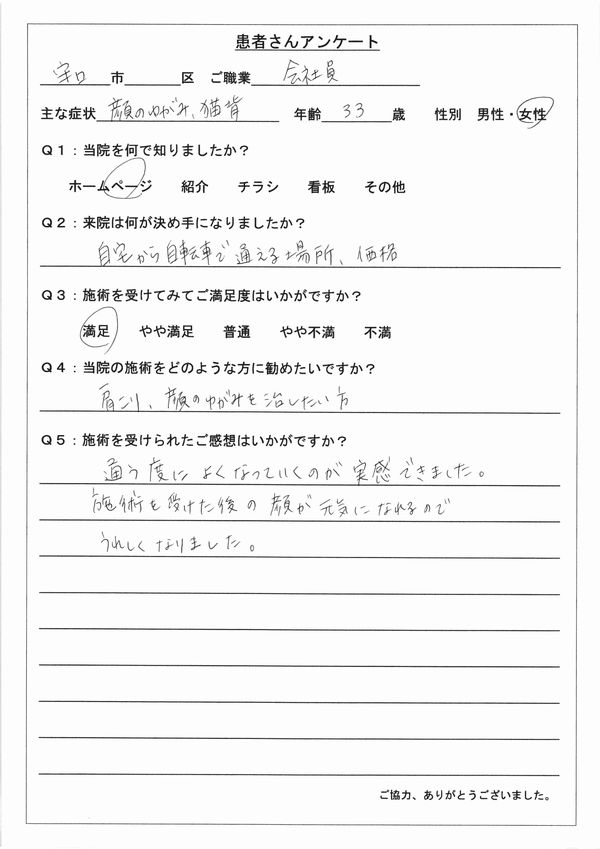 患者さんアンケート
守口市 区 ご職業 会社員
主な症状 顔のゆがみ、猫背 年齢 33 歳 性別 男性・女性
Q1：当院を何で知りましたか？
ホームページ 紹介 チラシ 看板 その他
Q2：来院は何が決め手になりましたか？
自宅から自転車で通える場所、価格
Q3：施術を受けてみてご満足度はいかがですか？
満足 やや満足 普通 やや不満 不満
Q4：当院の施術をどのような方に勧めたいですか？
肩こり、顔のゆがみを治したい方
Q5：施術を受けられたご感想はいかがですか？
通う度によくなっていくのが実感できました。
施術を受けた後の顔が元気になれるので
うれしくなりました。
ご協力、ありがとうございました。